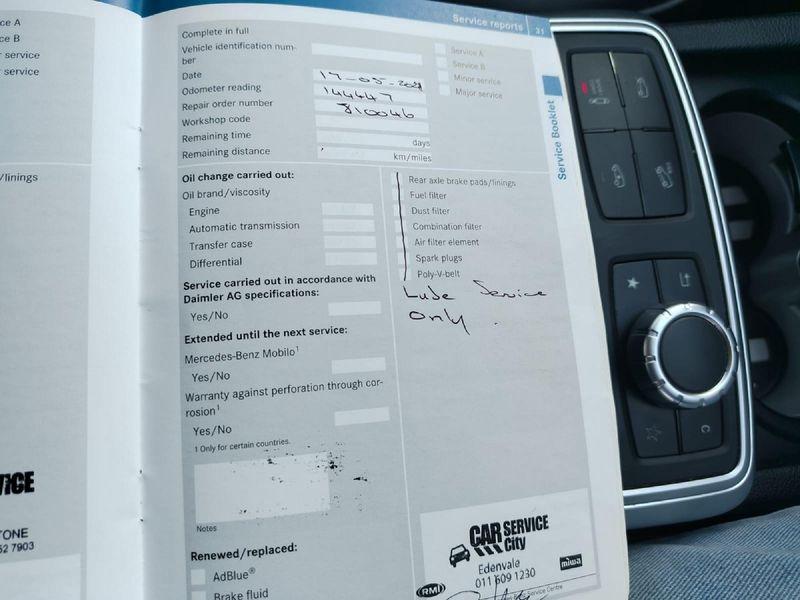 ce A
ce B
r service
service
/linings
VICE
TONE
52 7903
Service reports 31
Complete in full
Vehicle identification num-
ber
Date 17-05-2021
Odometer reading 144447
Repair order number 810046
Workshop code
Remaining time days
Remaining distance km/miles
Service A
Service B
Minor service
Major service
Service Booklet
Oil change carried out:
Oil brand/viscosity
Engine
Automatic transmission
Transfer case
Differential
Service carried out in accordance with
Daimler AG specifications:
Yes/No
Extended until the next service:
Mercedes-Benz Mobilo¹
Yes/No
Warranty against perforation through cor-
rosion¹
Yes/No
1 Only for certain countries.
Notes
Renewed/replaced:
AdBlue®
Brake fluid
Rear axle brake pads/linings
Fuel filter
Dust filter
Combination filter
Air filter element
Spark plugs
Poly-V-belt
Lube Service
only.
CAR SERVICE
City
Edenvale
011 609 1230
RMI
miwa
Service Centre
C